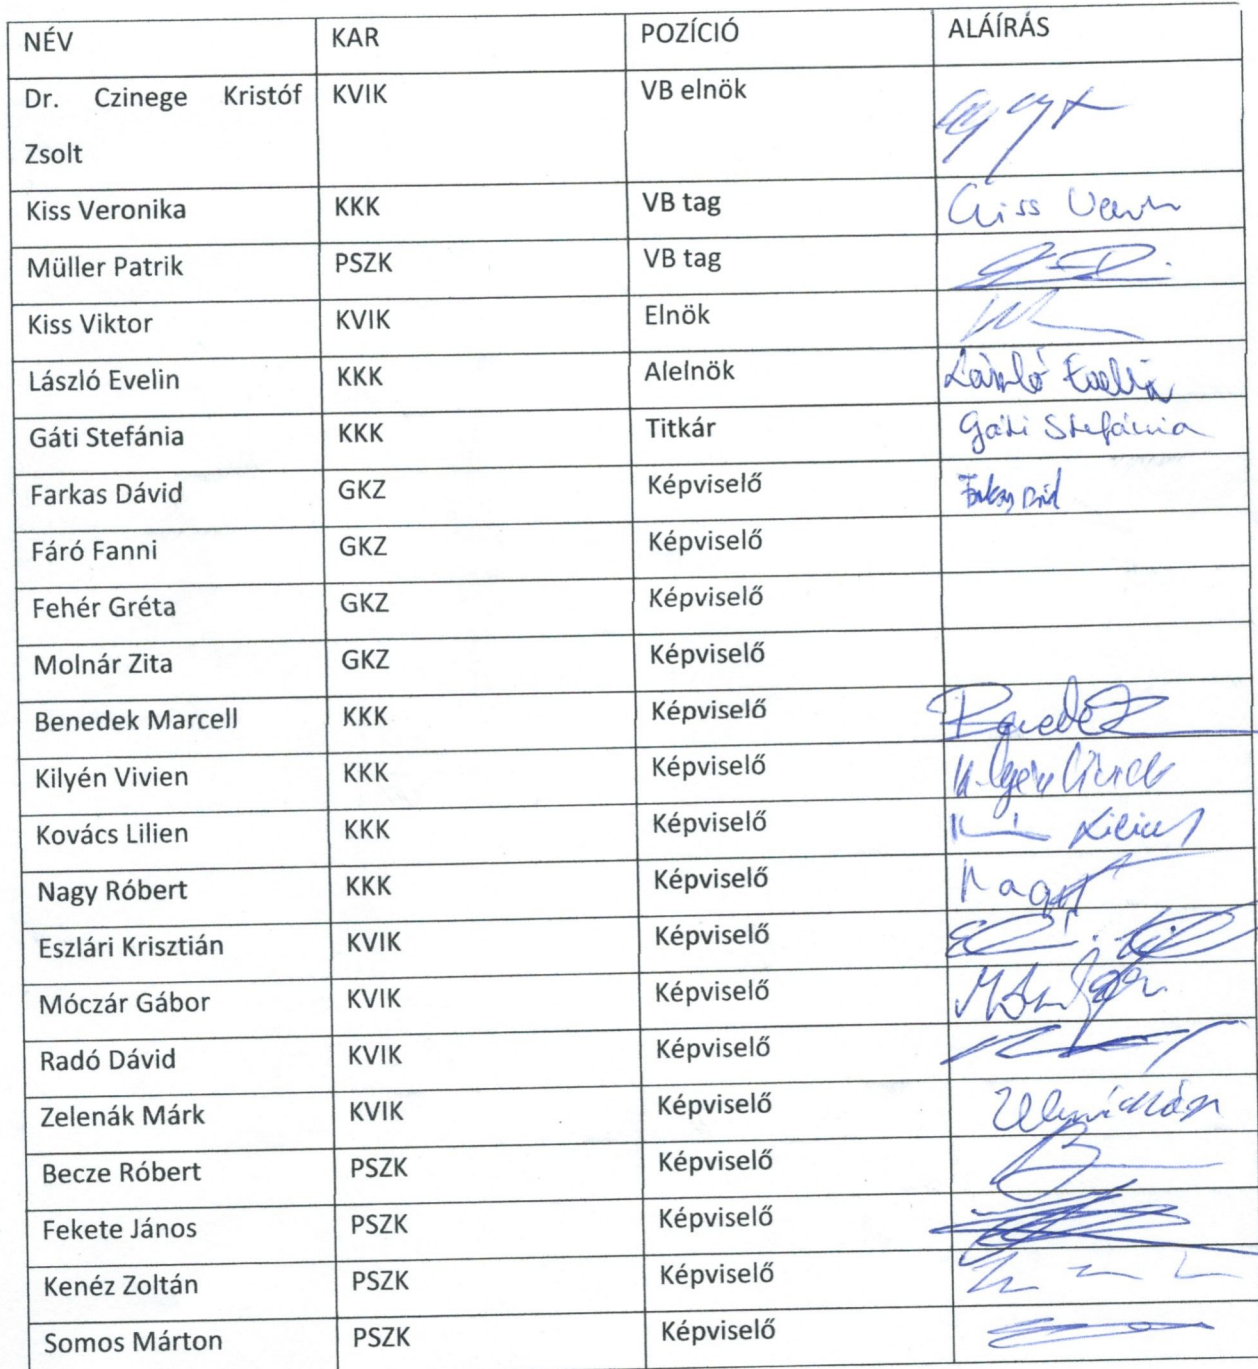 NÉV KAR POZÍCIÓ ALÁÍRÁS
Dr. Czinege Kristóf KVIK VB elnök
Zsolt
Kiss Veronika KKK VB tag Kiss
Müller Patrik PSZK VB tag
Kiss Viktor KVIK Elnök
László Evelin KKK Alelnök László Evelin
Gáti Stefánia KKK Titkár Gáti Stefánia
Farkas Dávid GKZ Képviselő Farkas Dávid
Fáró Fanni GKZ Képviselő
Fehér Gréta GKZ Képviselő
Molnár Zita GKZ Képviselő
Benedek Marcell KKK Képviselő Benedek
Kilyén Vivien KKK Képviselő Kilyén Vivien
Kovács Lilien KKK Képviselő Lilien
Nagy Róbert KKK Képviselő Nagy
Eszlári Krisztián KVIK Képviselő
Móczár Gábor KVIK Képviselő
Radó Dávid KVIK Képviselő
Zelenák Márk KVIK Képviselő
Becze Róbert PSZK Képviselő
Fekete János PSZK Képviselő
Kenéz Zoltán PSZK Képviselő
Somos Márton PSZK Képviselő